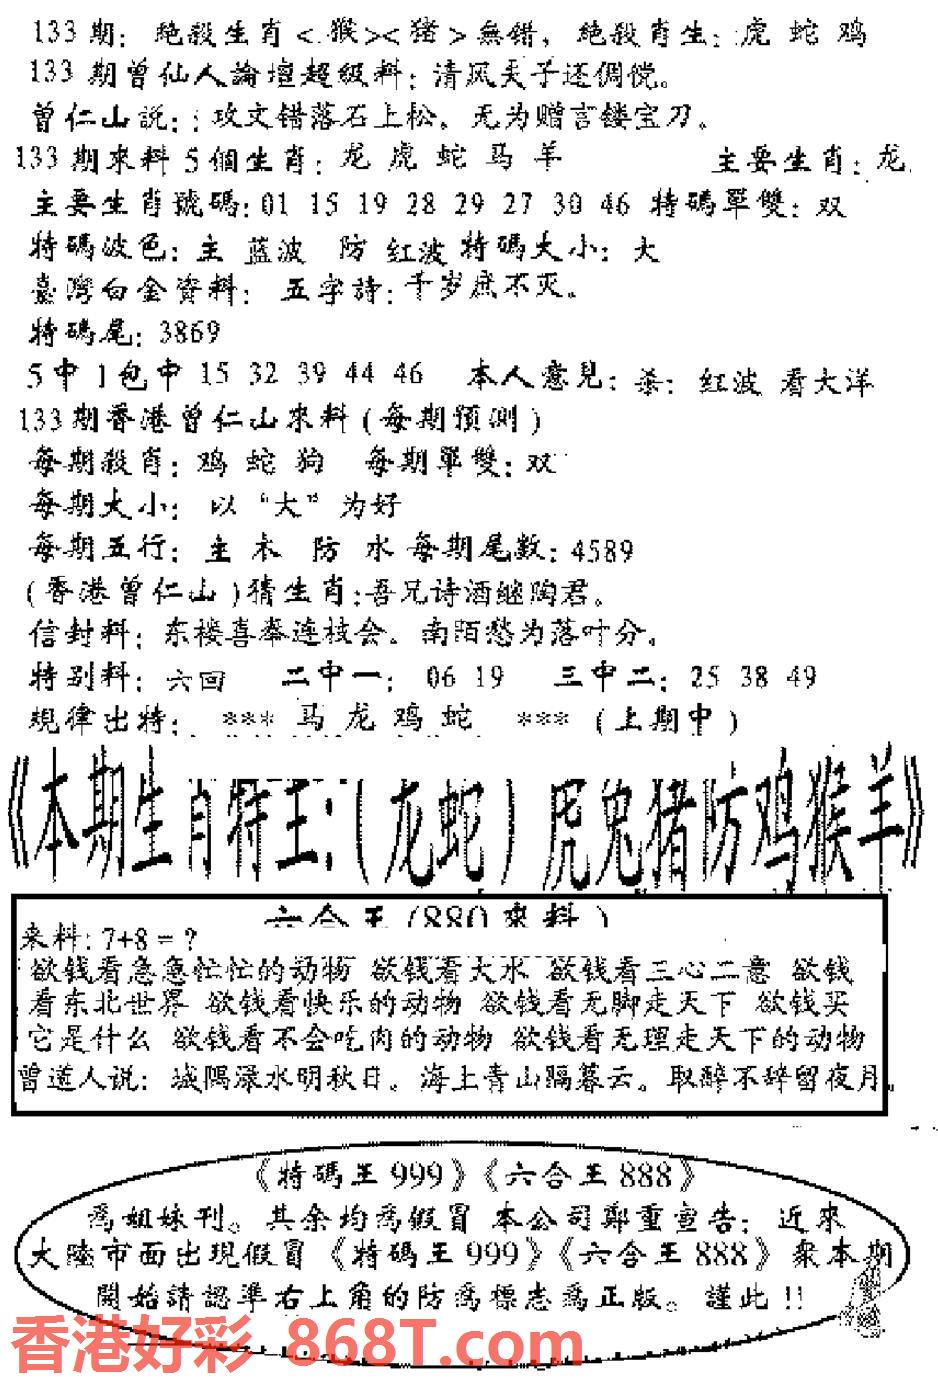 133期：絶殺生肖<猴><猪>無錯，絶殺肖生：虎 蛇 鸡
133期曾仙人論壇超級料：清风天子还倜傥。
曾仁山説：攻文错落石上松。无为赠言镂宝刀。
133期來料5個生肖：龙 虎 蛇 马 羊 主要生肖：龙
主要生肖號碼：01 15 19 28 29 27 30 46 特碼單雙：双
特碼波色：主 蓝波 防 红波 特碼大小：大
臺灣白金資料： 五字詩：千岁庶不灭。
特碼尾：3869
5中1包中 15 32 39 44 46 本人意見：杀：红波 看大洋
133期香港曾仁山來料(每期預測)
每期殺肖：鸡 蛇 狗 每期單雙：双
每期大小： 以“大”为好
每期五行：主 木 防 水 每期尾数：4589
(香港曾仁山)猜生肖：吾兄诗酒继陶君。
信封料：东楼喜奉连枝会。南陌愁为落叶分。
特别料：六回 二中一：06 19 三中二：25 38 49
規律出特： *** 马 龙 鸡 蛇 *** (上期中)
《本期生肖特王：(龙蛇)虎兔猪防鸡猴羊》
六合王(880來料)
来料：7+8=？
欲钱看急急忙忙的动物 欲钱看大水 欲钱看三心二意 欲钱
看东北世界 欲钱看快乐的动物 欲钱看无脚走天下 欲钱买
它是什么 欲钱看不会吃肉的动物 欲钱看无理走天下的动物
曾道人说：城隅渌水明秋日。海上青山隔暮云。取醉不辞留夜月。
《特碼王999》《六合王888》
為姐妹刊。其余均為假冒 本公司鄭重宣告：近來
大陸市面出現假冒《特碼王999》《六合王888》衆本期
開始請認準右上角的防為標志為正版。謹此!!
香港好彩 868T.com